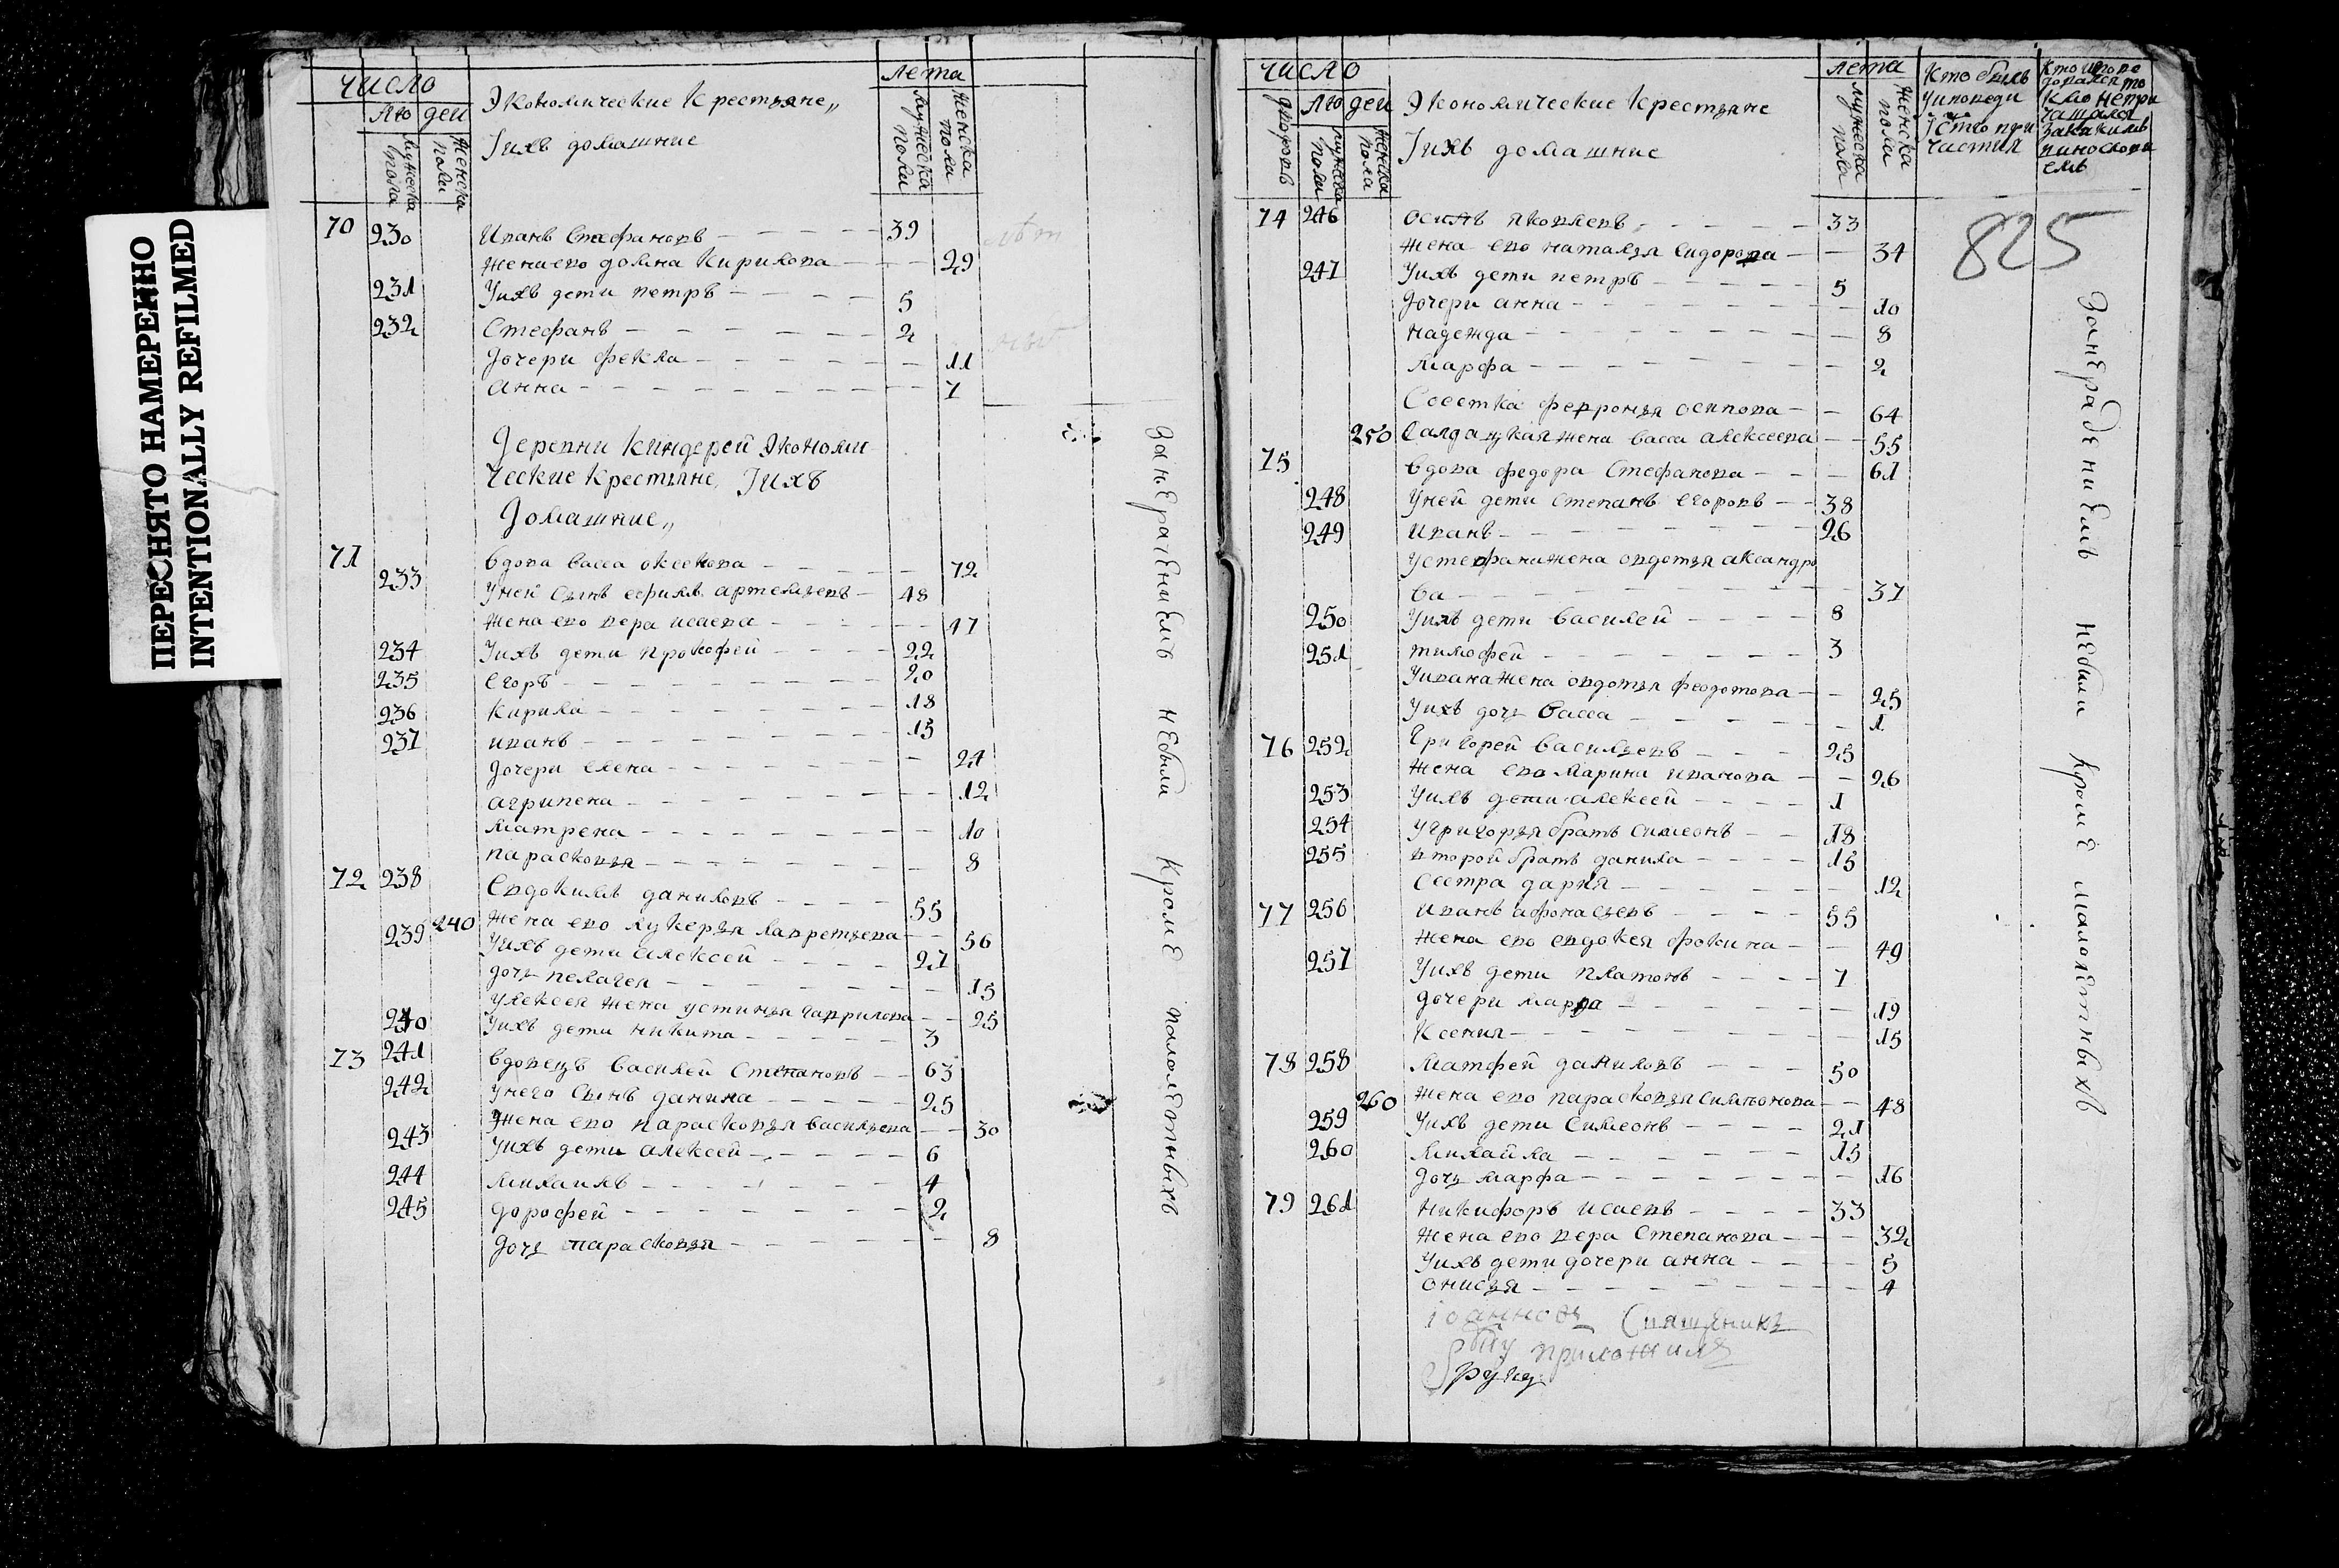 ПЕРЕСНЯТО НАМЕРЕННО
INTENTIONALLY REFILMED
число
лю дей
мужеска пола
женска пола
Экономические Крестьяне,,
Iихъ домашние
лета
мужеска пола
женска пола
70 230 Иванъ Стефановъ 39
жена ево домна Кирилова 29
231 Уихъ дети петръ 5
232 Стефанъ 2
дочери фекла 11
анна 7
Деревни Киндерей Экономи
ческие Крестьяне, Iихъ
Домашние,,
71 вдова васса 72
233 Уней сынъ ефимъ артемьевъ 48
жена ево вера исаева 47
234 Уихъ дети прокофей 22
235 егоръ 20
236 кирила 18
237 иванъ 15
дочери елена 24
агрипена 12
матрена 10
парасковья 8
72 238 Евдокимъ даниловъ 55
240 жена ево лукерья лавретьева 56
239 Уихъ дети алексей 27
дочь пелагея 15
Уалексея жена устинья гаврилова 25
240 Уихъ дети никита 3
73 241 вдовецъ василей Степановъ 63
242 Унего сынъ данила 25
жена ево парасковья васильева 30
243 Уихъ дети алексей 6
244 михаилъ 4
245 дорофей 2
дочь парасковья 8
Занерадениемъ небыли Кроме малолетныхъ
число
дворовъ
лю дей
мужеска пола
женска пола
Экономические Крестьяне
Iихъ домашние
лета
мужеска пола
женска пола
Кто былъ
Уисповеди
причастия
825
74 246 осипъ яковлевъ 33
жена ево наталья сидорова 34
247 Уихъ дети петръ 5
дочери анна 10
надежда 8
марфа 2
феврония осипова 64
250 Салдацкая жена васса алексеева 55
75 вдова федора Стефанова 61
248 Уней дети степанъ егоровъ 38
249 иванъ 26
Устефана жена овдотья аксандро
ва 37
250 Уихъ дети василей 8
251 тимофей 3
Уивана жена овдотья феодотова 25
Уихъ дочь васса 1
76 252 Григорей васильевъ 25
жена ево марина иванова 26
253 Уихъ дети алексей 1
254 Угригорья братъ симеонъ 18
255 второй братъ данила 15
сестра дария 12
77 256 иванъ афонасьевъ 55
жена ево евдокея фокина 49
257 Уихъ дети платонъ 7
дочери марфа 19
ксения 15
78 258 матфей даниловъ 50
260 жена ево парасковья симионова 48
259 Уихъ дети симеонъ 21
260 михайла 15
дочь марфа 16
79 261 никифоръ исаевъ 33
жена ево вера степанова 32
Уихъ дети дочери анна 5
онисья 4
руку приложилъ
Занерадениемъ небыли Кроме малолетныхъ